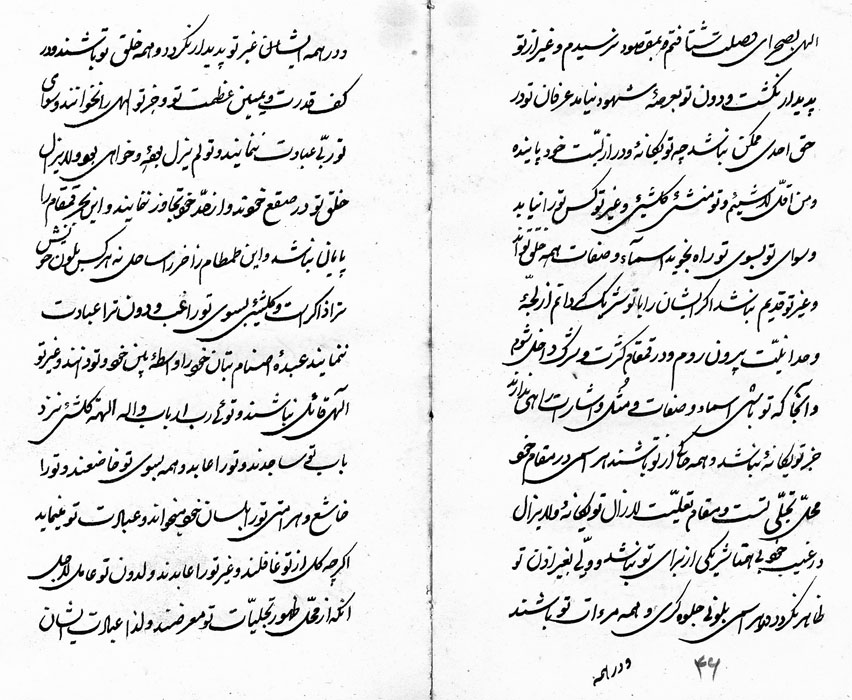 الهی بصحرای وصلت شتافتم و بمقصود نرسیدم و غیر از تو
پدیدار نگشت و دون تو بعرصهٔ شهود نیامد عرفان تو در
حق احدی ممکن نباشد چه تو یگانهٔ و در ازلیّت خود پاینده
و من اقلّ لاشیئم و تو منشئ کلشیئی و غیر تو کس تو را نیابد
و سوای تو بسوی تو راه نجوید اسماء و صفات همه خلق تواند
و غیر تو قدیم نباشد اگر ایشان را با تو شریک دانم از لجّهٔ
وحدانیّت بیرون روم و در قمقام کثرت و شرک داخل شوم
و آنجا که تو باشی اسماء و صفات و مُثُل و اشارات راهی ندارند
جز تو یگانهٔ نباشد و همه از تو باشند هر اسمی در مقام خود
محلّ تجلّی تست و مقام تجلیّت لازال تو یگانهٔ و لایزال
در غیب خود بی همتا شریکی از برای تو نباشد و ولیّ بغیر اذن تو
ظاهر نگردد در هر اسمی بلونی جلوه گری و همه مرءات تو باشند
و در همه
۴۶
و در همه ایشان غیر تو پدیدار نگردد و همه خلق تو باشند و در
کف قدرت و یمین عظمت تو و جز تو الهی را نخوانند و سوای
تو ربّی عبادت ننمایند و تو لم یزل بودهٔ و خواهی بود و لایزال
خلق تو در صقع خودند و از حدّ خود تجاوز ننمایند و این بحر قمقام را
پایان نباشد و این طمطام زاخر را ساحلی نه هر کس بلون خویش
ترا ذاکر است و کلشیئی بسوی تو راغب و دون ترا عبادت
ننمایند عبدهٔ اصنام بتان خود را واسطهٔ بین خود و تو دانند و غیر تو
الهی قائل نباشند و توئی رب ارباب و اله الهة کلشئ نزد
باب تو ساجدند و تو را عابد و همه بسوی تو خاضعند و تو را
خاشع و هر امتی تو را بلسان خود میخواند و عبادت تو مینماید
اگر چه کل از تو غافلند و غیر تو را عابدند و لدون تو عامل لاجل
آنکه از محلّ ظهور تجلیّات تو معرضند و لذا عبادت ایشان